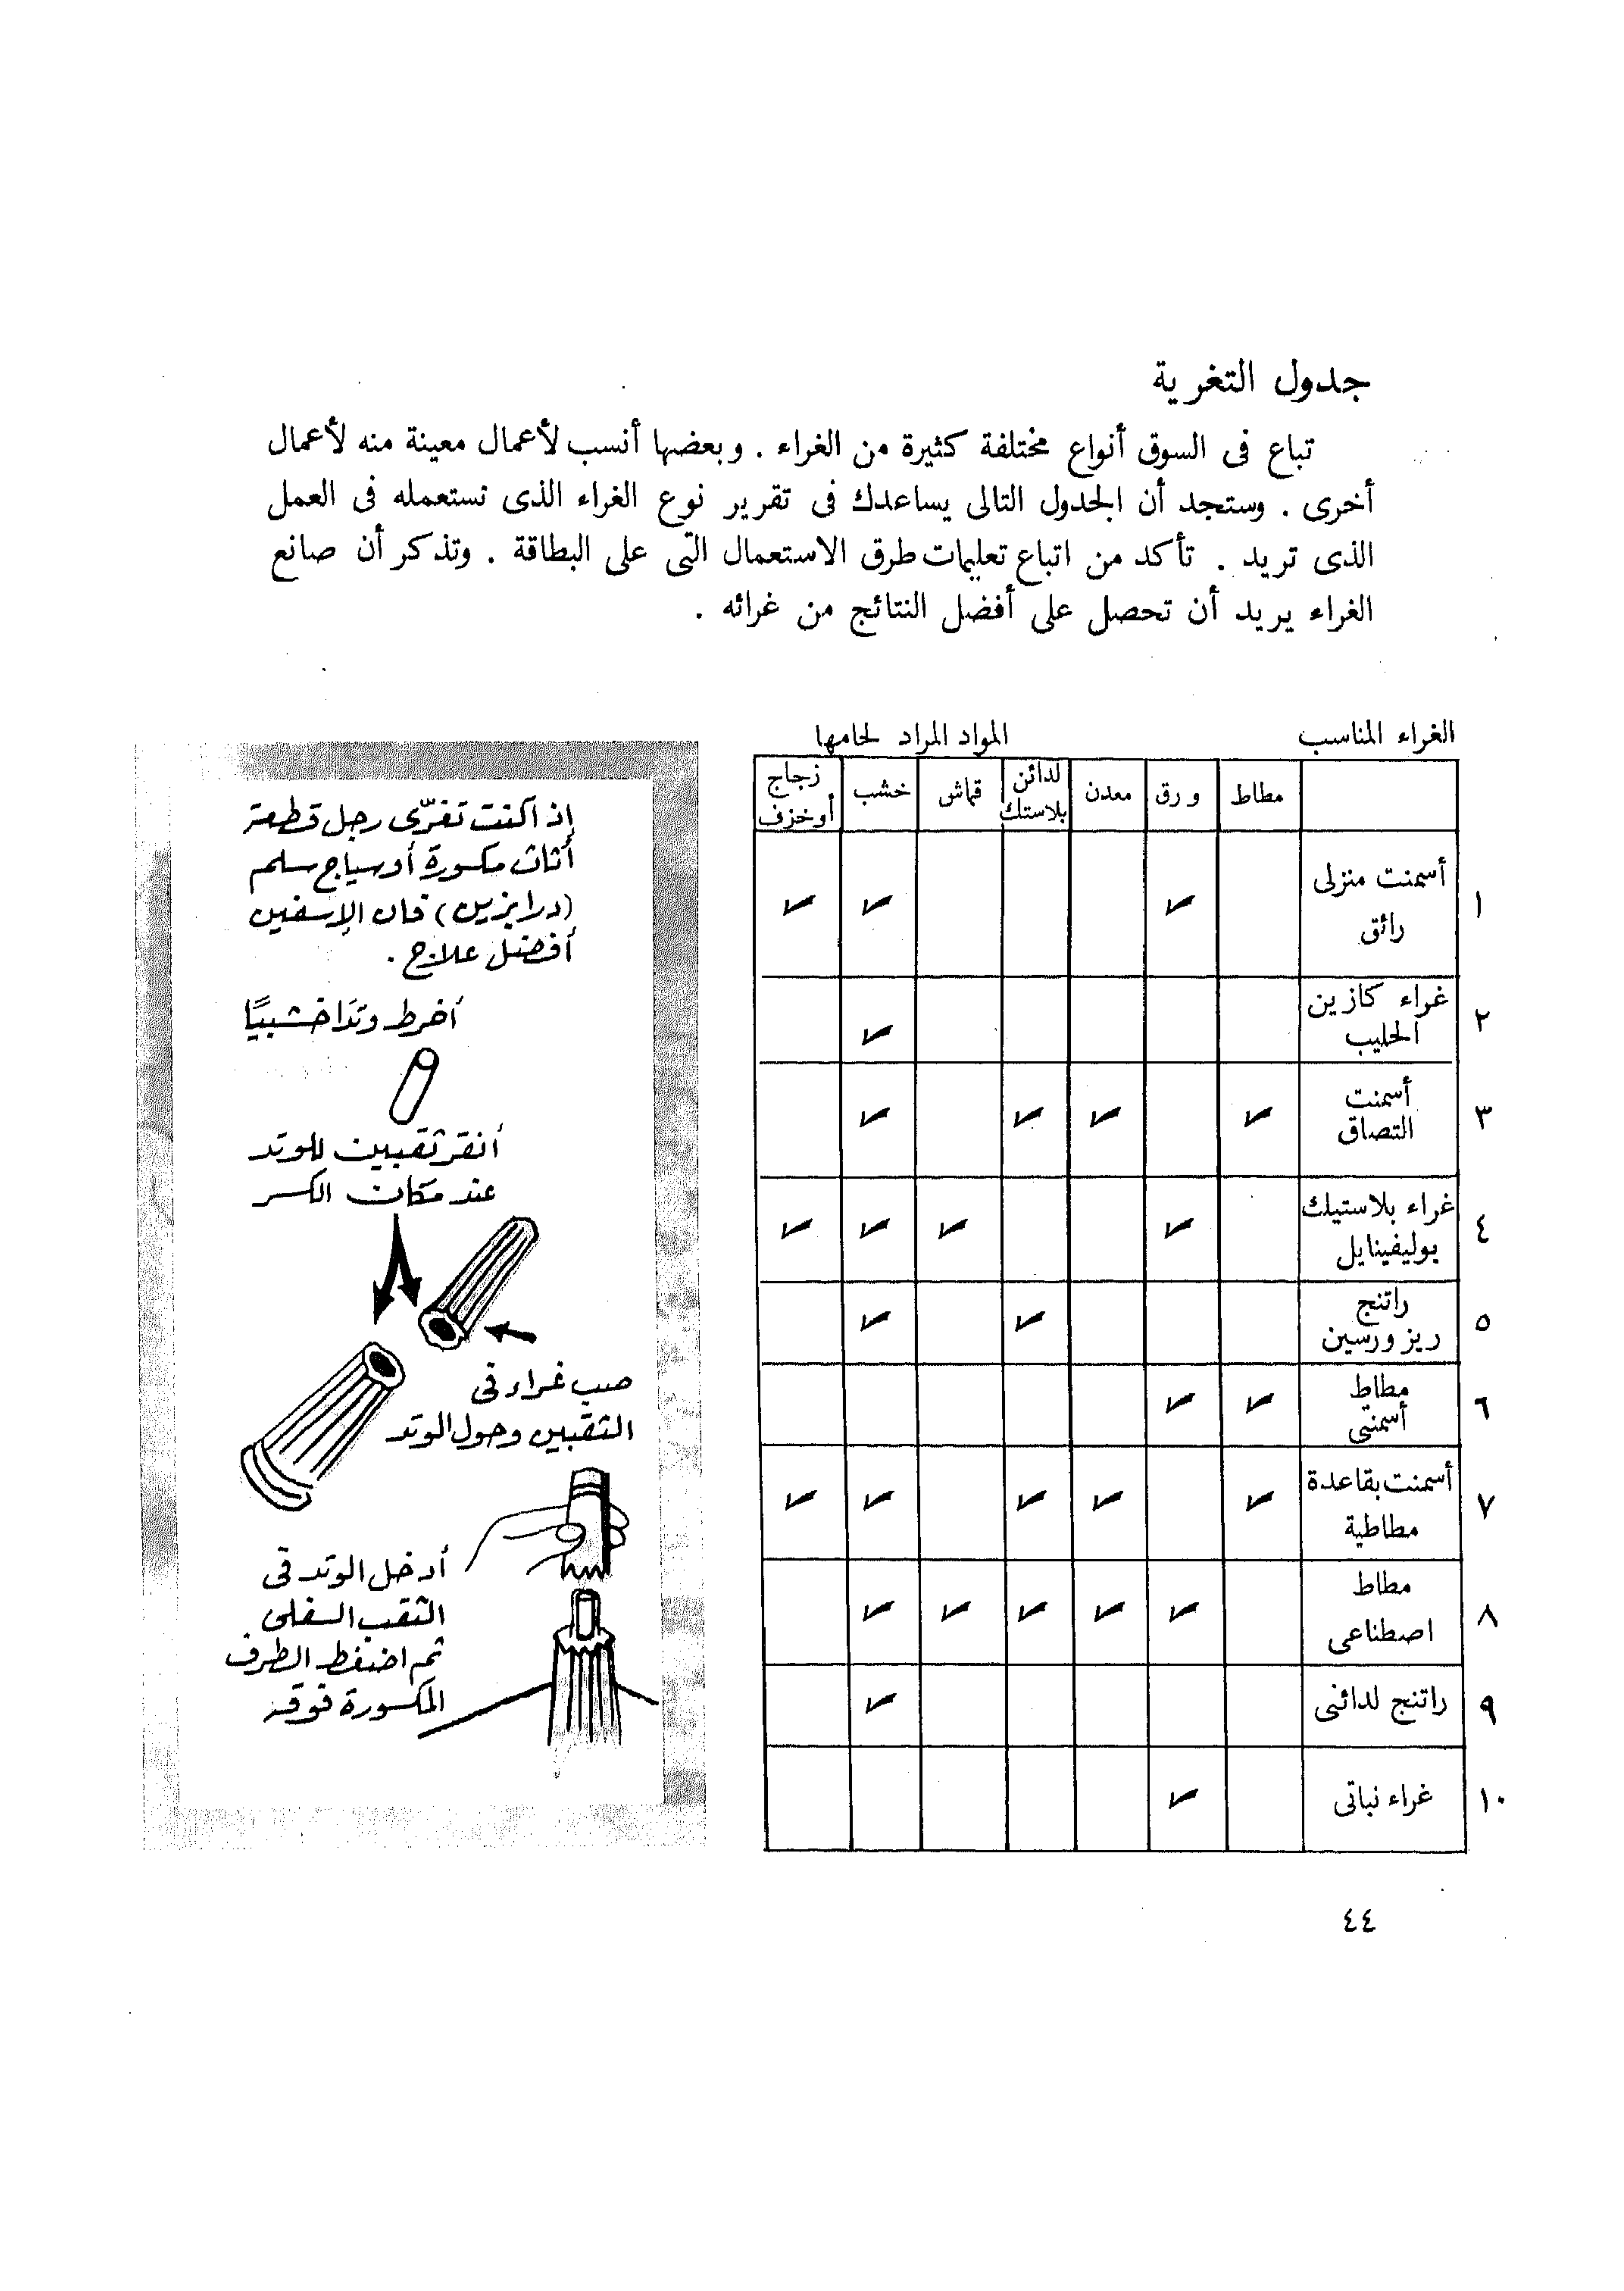 جدول التغرية
تباع فى السوق أنواع مختلفة كثيرة من الغراء . وبعضها أنسب لأعمال معينة منه لأعمال
أخرى . وستجد أن الجدول التالى يساعدك فى تقرير نوع الغراء الذى تستعمله فى العمل
الذى تريد . تأكد من اتباع تعليمات طرق الاستعمال التى على البطاقة . وتذكر أن صانع
الغراء يريد أن تحصل على أفضل النتائج من غرائه .
الغراء المناسب المواد المراد لحامها
مطاط ورق معدن لدائن بلاستك قماش خشب زجاج أوخزف
١ أسمنت منزلى رائق ✓ ✓ ✓
٢ غراء كازين الحليب ✓
٣ أسمنت التصاق ✓ ✓ ✓ ✓
٤ غراء بلاستيك بوليفينايل ✓ ✓ ✓ ✓
٥ راتنج ريزورسين ✓ ✓
٦ مطاط أسمنتى ✓ ✓
٧ أسمنت بقاعدة مطاطية ✓ ✓ ✓ ✓ ✓
٨ مطاط اصطناعى ✓ ✓ ✓ ✓ ✓
٩ راتنج لدائنى ✓
١٠ غراء نباتى ✓
إذا كنت تغرّى رجل قطعة
أثاث مكسورة أو سياج سلم
(درابزين) فان الإسفين
أفضل علاج .
أخرط وتدًا خشبيًا
أنقر ثقبين للوتد
عند مكان الكسر
صب غراء فى
الثقبين وحول الوتد
أدخل الوتد فى
الثقب السفلى
ثم اضغط الطرف
المكسورة فوقه
٤٤